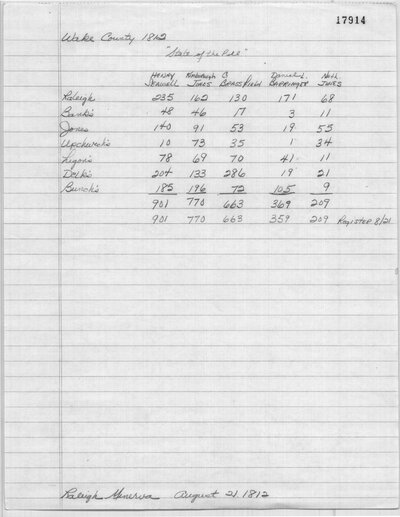 17914
Wake County 1812
"State of the Poll"
Henry Kimbrough C Daniel L. Nath
Seawell Jones Brassfield Barringer Jones
Raleigh 235 162 130 171 68
Banks 48 46 17 3 11
Jones 140 91 53 19 55
Upchurch's 10 73 35 1 34
Ligon's 78 69 70 41 11
Delk's 204 133 286 19 21
Bunch's 185 196 72 105 9
901 770 663 369 209
901 770 663 359 209 Register 8/21
Raleigh Minerva August 21 1812